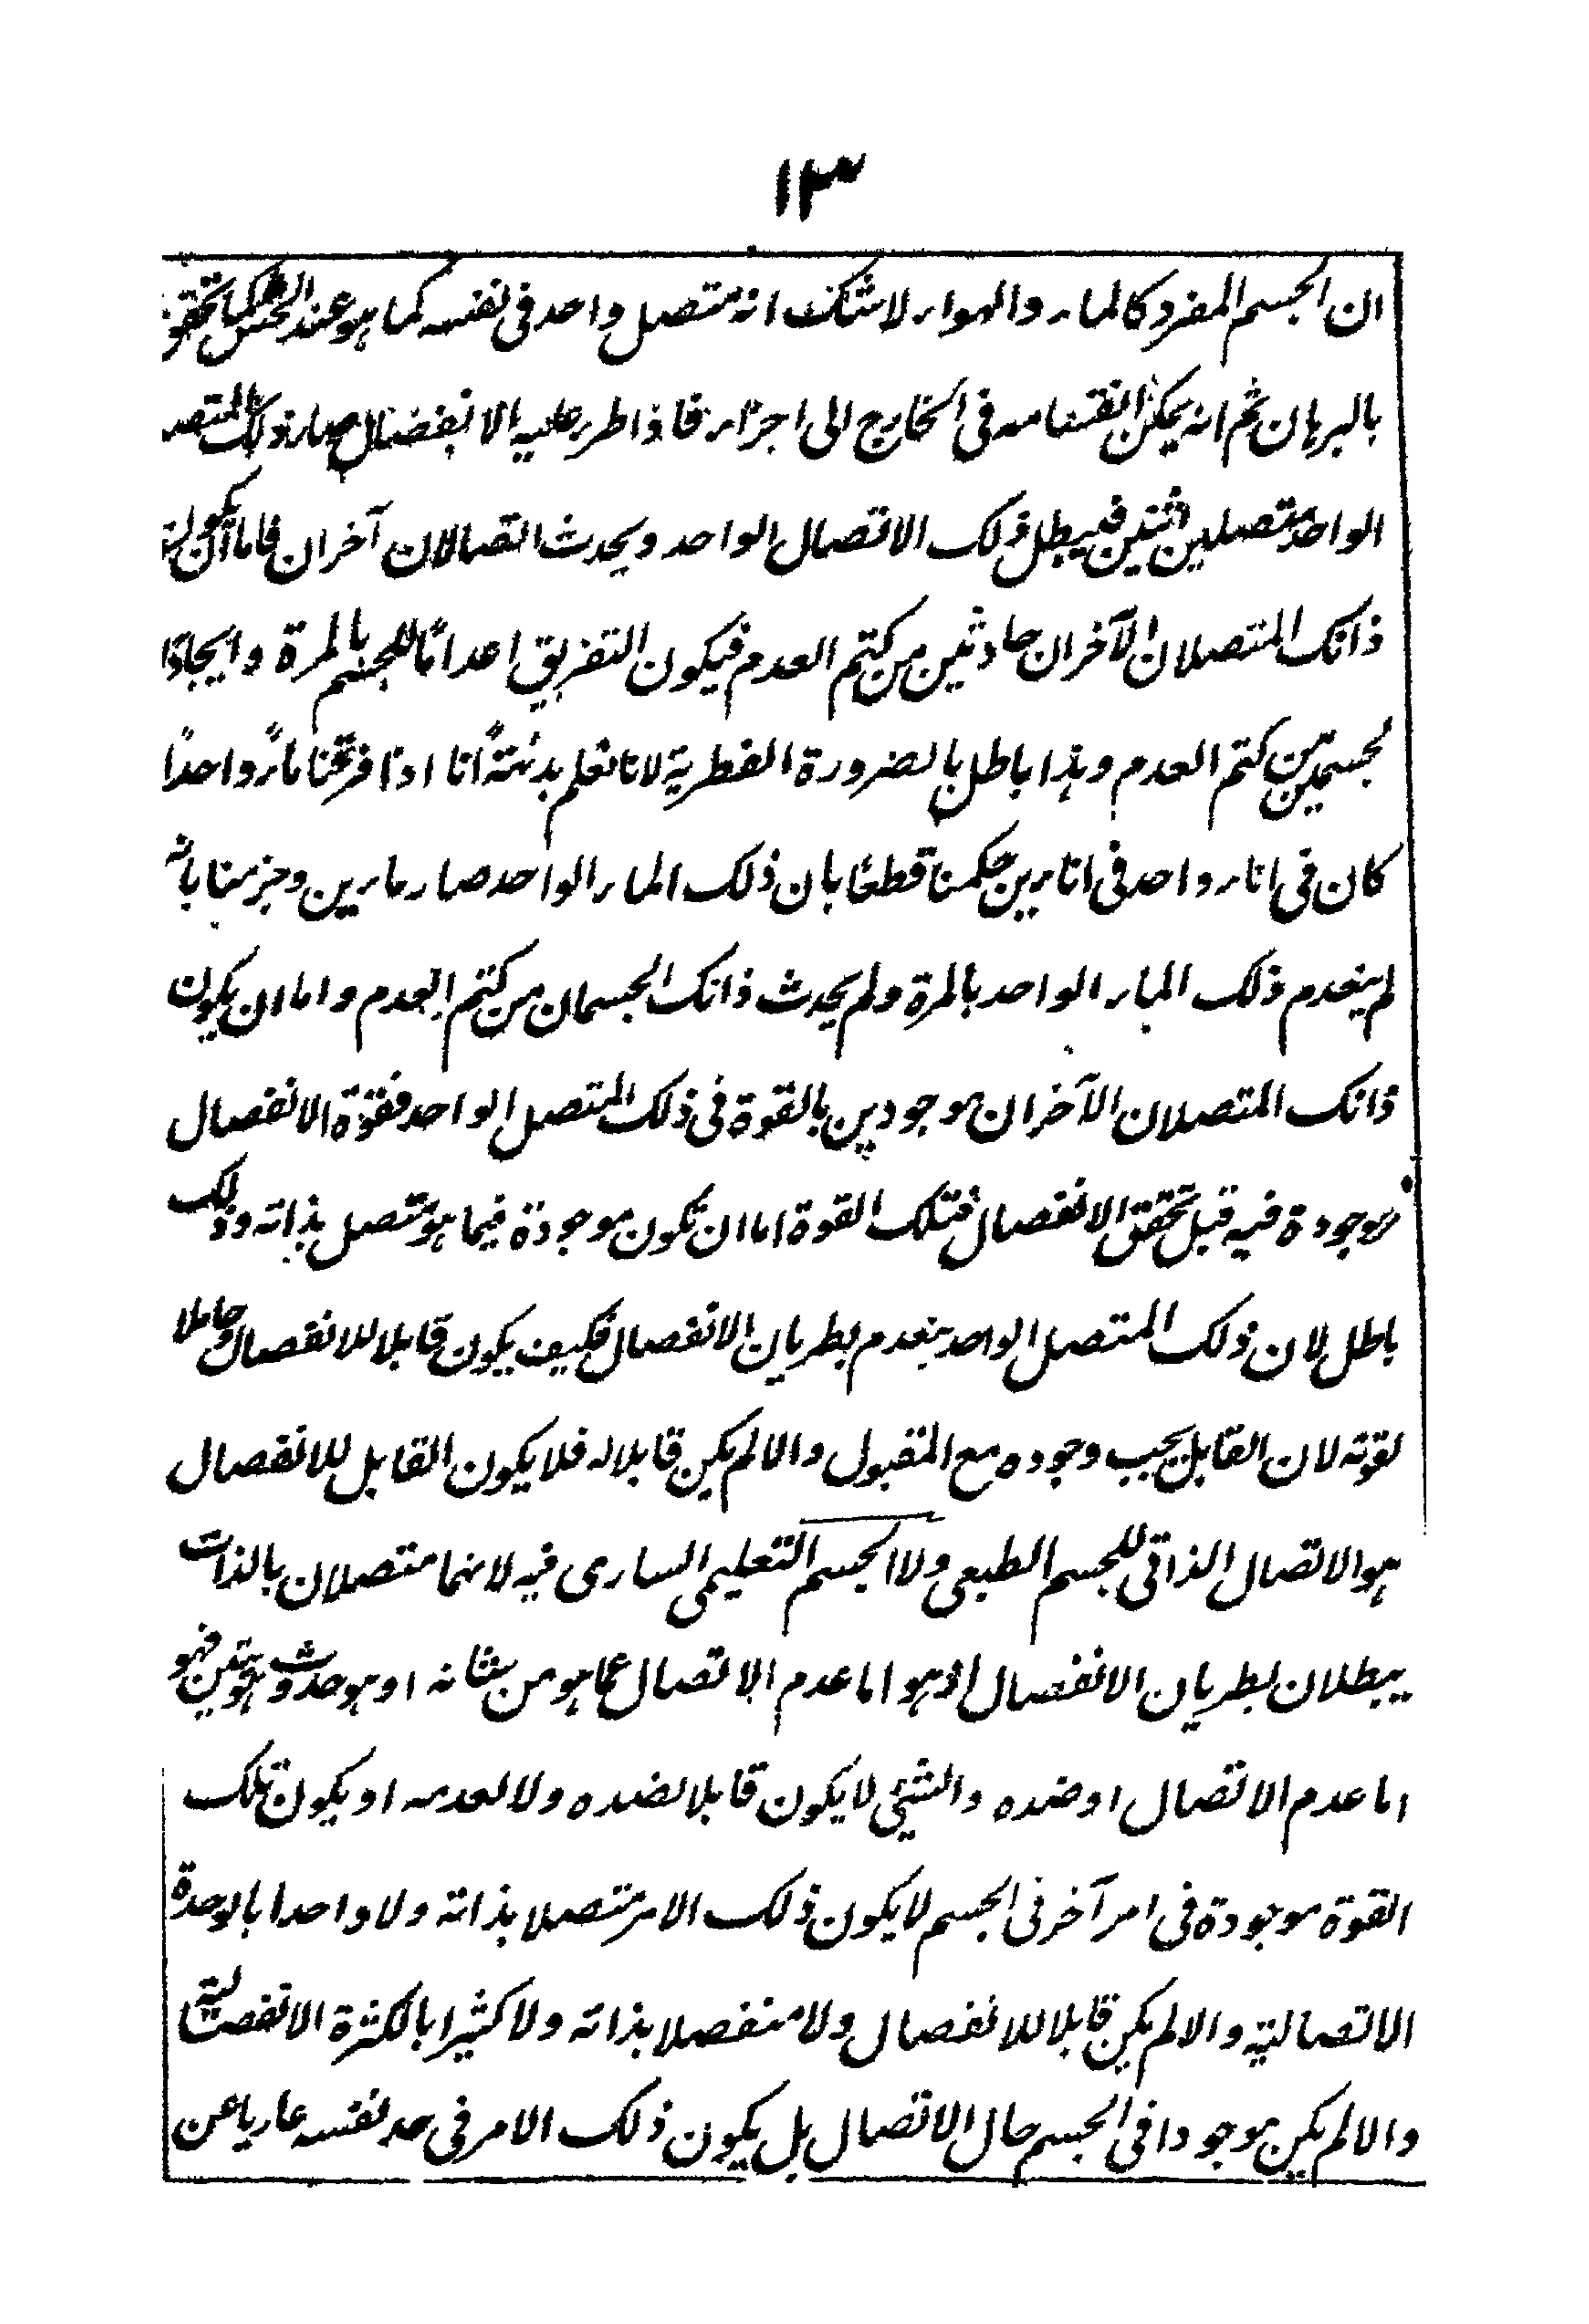 ١٣
ان الجسم المفرد كالماء والهواء لا شك انه متصل واحد فى نفسه كما هو عند الحس كما تحقق
بالبرهان ثم انه يمكن انقسامه فى الخارج الى اجزاء فاذا طرء عليه الانفصال صار ذلك المتصل
الواحد متصلين اثنين فيبطل ذلك الاتصال الواحد ويحدث اتصالان آخران فاما ان يكون
ذانك المتصلان الآخران حادثين من كتم العدم فيكون التفريق اعدامًا للجسم بالمرة وايجادًا
لجسمين من كتم العدم وهذا باطل بالضرورة الفطرية لانا نعلم بداهةً انا اذا فرقنا ماءً واحدًا
كان فى اناء واحد فى انائين حكمنا قطعًا بان ذلك الماء الواحد صار مائين وجزمنا بانه
لم ينعدم ذلك الماء الواحد بالمرة ولم يحدث ذانك الجسمان من كتم العدم واما ان يكون
ذانك المتصلان الآخران موجودين بالقوة فى ذلك المتصل الواحد فقوّة الانفصال
موجودة فيه قبل تحقق الانفصال فتلك القوة اما ان تكون موجودة فيما هو متصل بذاته وذلك
باطل لان ذلك المتصل الواحد ينعدم بطريان الانفصال فكيف يكون قابلا للانفصال وحاملا
لقوته لان القابل يجب وجوده مع المقبول والا لم يكن قابلا له فلا يكون القابل للانفصال
هو الاتصال الذاتى للجسم الطبعى ولا الجسم التعليمى السارى فيه لانهما متصلان بالذات
يبطلان بطريان الانفصال اذ هو اما عدم الاتصال عما هو من شانه او هو حدوث هويتين فهو
اما عدم الاتصال او ضده والشيئ لا يكون قابلا لضده ولا لعدمه او يكون تلك
القوة موجودة فى امر آخر فى الجسم لا يكون ذلك الامر متصلا بذاته ولا واحدا بالوحدة
الاتصالية والا لم يكن قابلا للانفصال ولا منفصلا بذاته ولا كثيرا بالكثرة الانفصالية
والا لم يكن موجودا فى الجسم حال الاتصال بل يكون ذلك الامر فى حد نفسه عاريا عن